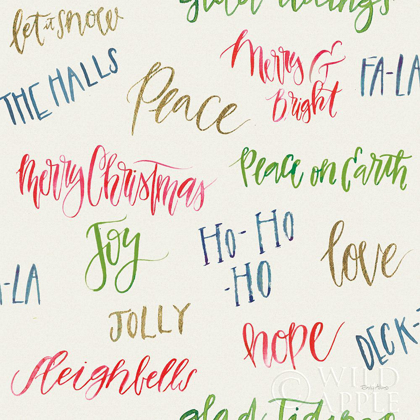 glad tidings
let it snow
Merry &
Bright
FA-LA
THE HALLS
Peace
Merry Christmas
Peace on Earth
Joy
Ho-Ho
-HO
love
-LA
JOLLY
hope
DECK
Sleighbells
glad tidings
WILD
APPLE